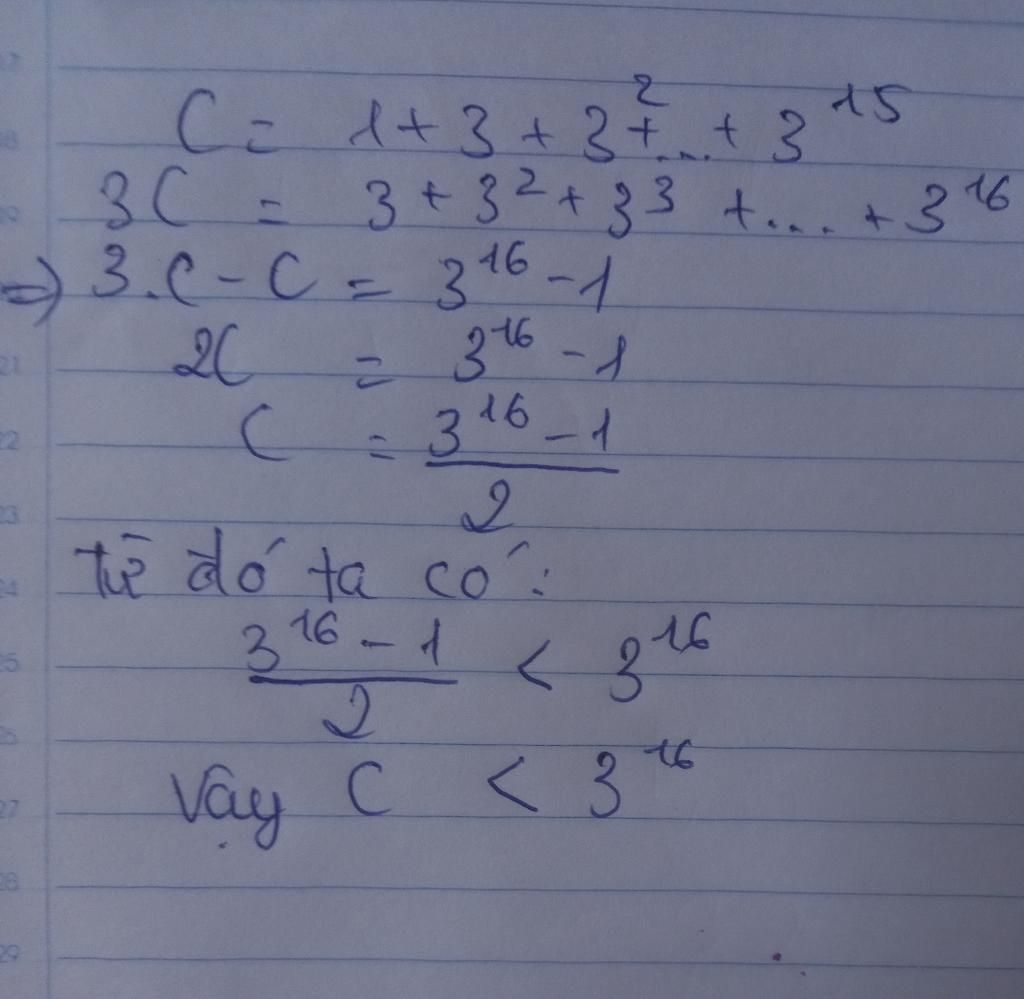 C = 1 + 3 + 3² + ... + 3¹⁵
3C = 3 + 3² + 3³ + .... + 3¹⁶
=) 3.C - C = 3¹⁶ - 1
2C = 3¹⁶ - 1
C = 3¹⁶ - 1
2
từ đó ta có:
3¹⁶ - 1 < 3¹⁶
2
Vậy C < 3¹⁶